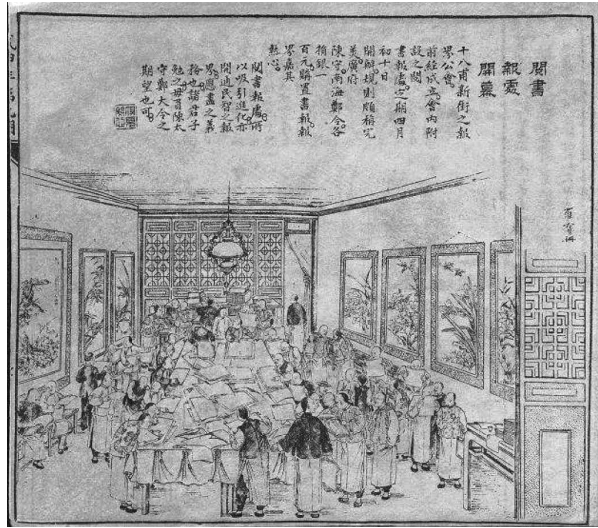 閱書
報處
開幕
十八甫新街之報
界公會
前經成立會內附
設之閱
書報處定期四月
初十日
開辦規則頗稱完
美廣府
陳守南海鄭令各
捐銀一
百元購置書報報
界嘉其
熱心
閱書報處所
以吸引進化亦
開通民智之報
界應盡之義
務也諸君子
勉之毋負陳太
守鄭大令之
期望也可